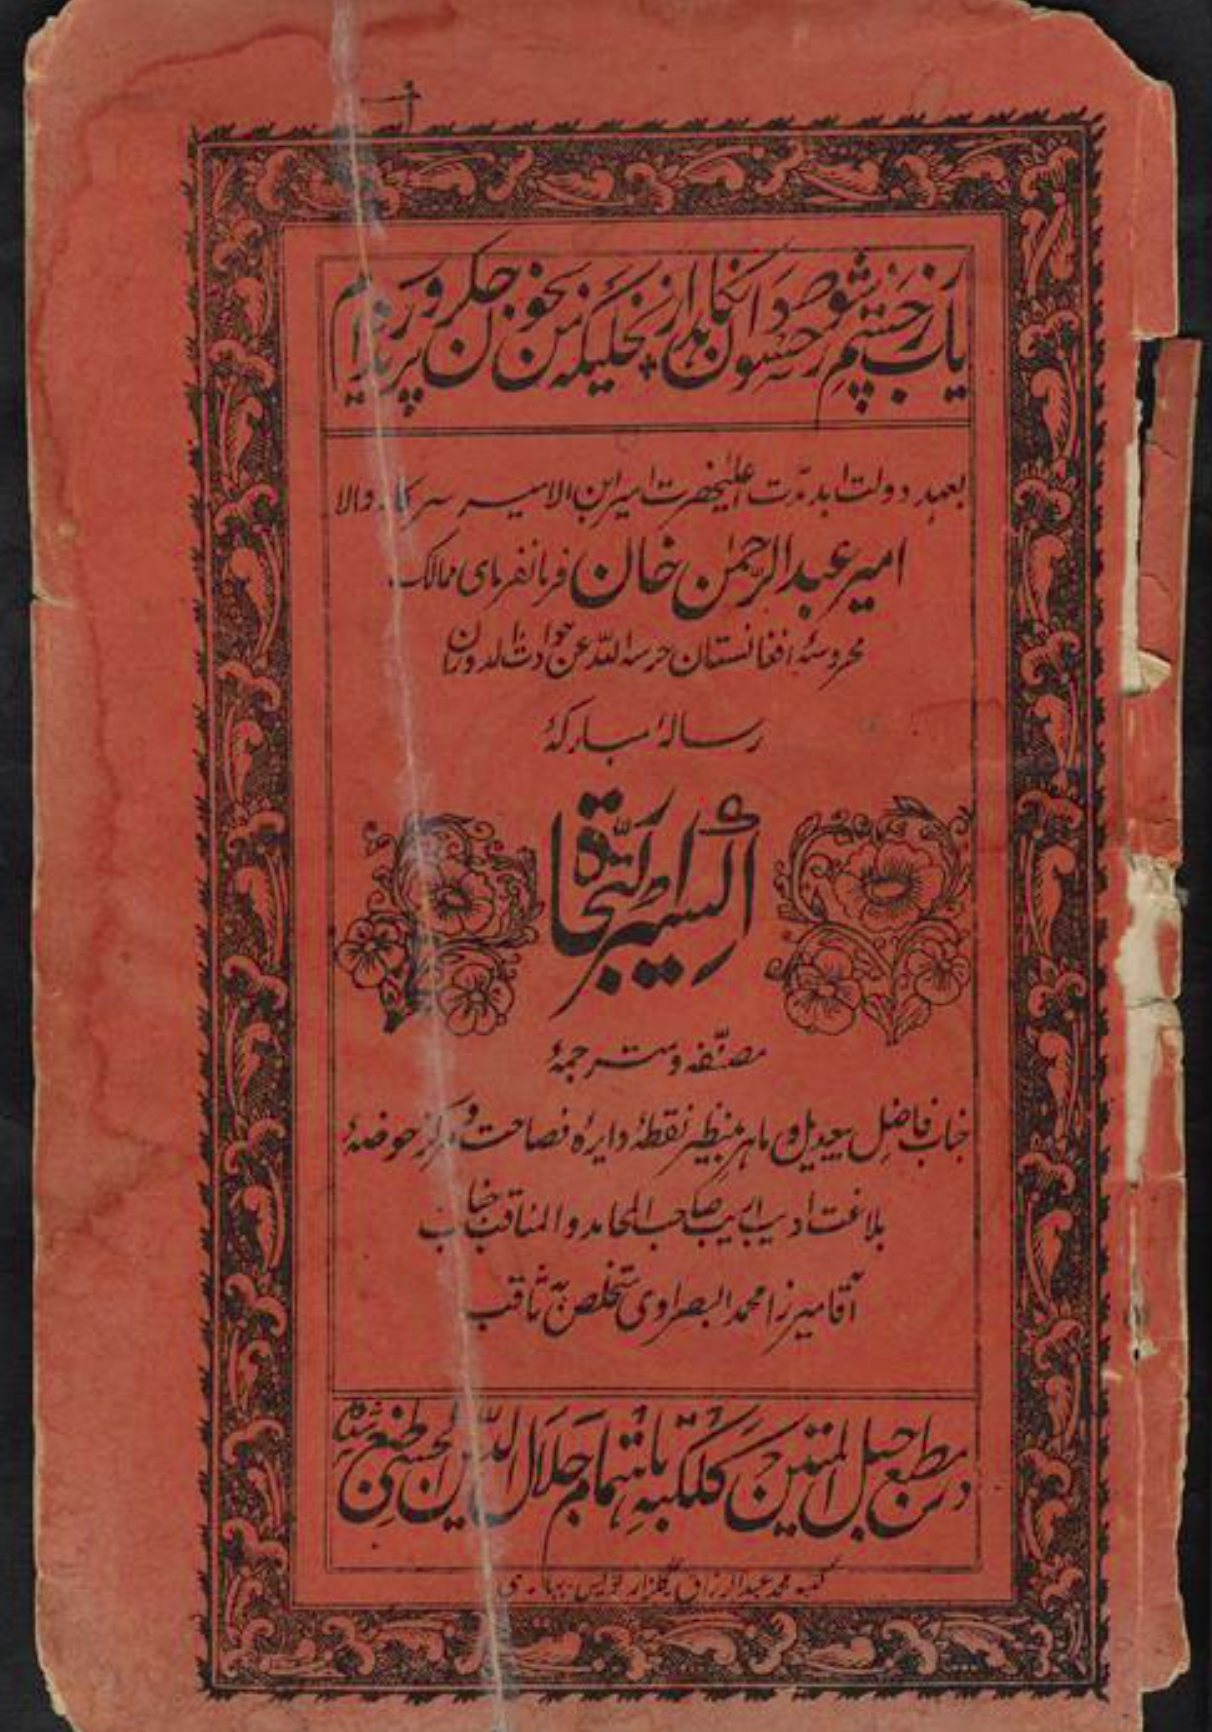 یارب ز چشم زخم حسودان نگاه دار
بعهد دولت ابدمدّت اعلیٰحضرت امیر ابن الامیر سرکار والا
امیر عبدالرحمٰن خان فرمانفرمای ممالک
محروسهٔ افغانستان حرسه اللّه عن حوادث الدوران
رسالهٔ مبارکهٔ
مصنّفه و مترجمهٔ
جناب فاضل بیعدیل و ماهر بینظیر نقطهٔ دایرهٔ فصاحت و مرکز حوضهٔ
بلاغت ادیب اریب صاحب المحامد والمناقب جناب
آقا میرزا محمد البصراوی متخلص بّه ثاقب
در مطبع حبل المتین کلکته باهتمام جلال الدّین الحسینی طبع شد
محمد عبدالرزاق گلزار نویس بهاری